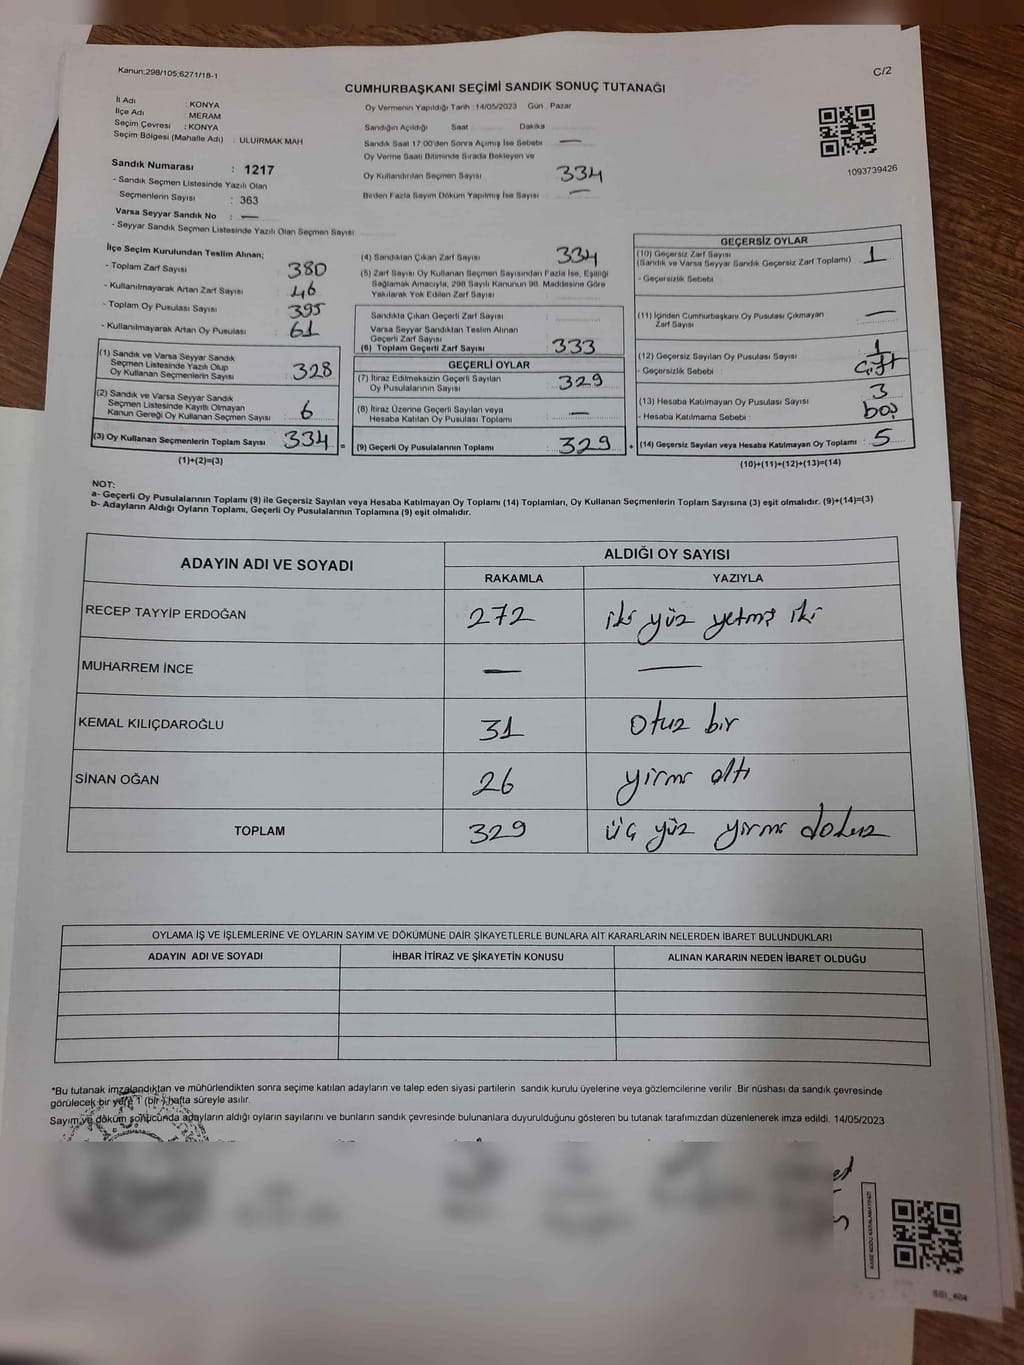 Kanun;298/105;6271/18-1
C/2
CUMHURBAŞKANI SEÇİMİ SANDIK SONUÇ TUTANAĞI
İl Adı : KONYA
İlçe Adı : MERAM
Seçim Çevresi : KONYA
Seçim Bölgesi (Mahalle Adı) : ULUIRMAK MAH
Oy Vermenin Yapıldığı Tarih :14/05/2023 Gün : Pazar
Sandığın Açıldığı Saat Dakika
Sandık Saat 17:00'den Sonra Açılmış İse Sebebi —
Oy Verme Saati Bitiminde Sırada Bekleyen ve
Oy Kullandırılan Seçmen Sayısı 334
Birden Fazla Sayım Döküm Yapılmış İse Sayısı : —
1093739426
Sandık Numarası : 1217
- Sandık Seçmen Listesinde Yazılı Olan
Seçmenlerin Sayısı : 363
Varsa Seyyar Sandık No : —
- Seyyar Sandık Seçmen Listesinde Yazılı Olan Seçmen Sayısı
İlçe Seçim Kurulundan Teslim Alınan;
- Toplam Zarf Sayısı 380
- Kullanılmayarak Artan Zarf Sayısı : 46
- Toplam Oy Pusulası Sayısı : 395
- Kullanılmayarak Artan Oy Pusulası : 61
(1) Sandık ve Varsa Seyyar Sandık
Seçmen Listesinde Yazılı Olup
Oy Kullanan Seçmenlerin Sayısı : 328
(2) Sandık ve Varsa Seyyar Sandık
Seçmen Listesinde Kayıtlı Olmayan
Kanun Gereği Oy Kullanan Seçmen Sayısı : 6
(3) Oy Kullanan Seçmenlerin Toplam Sayısı : 334 =
(1)+(2)=(3)
(4) Sandıktan Çıkan Zarf Sayısı : 334
(5) Zarf Sayısı Oy Kullanan Seçmen Sayısından Fazla İse, Eşitliği
Sağlamak Amacıyla, 298 Sayılı Kanunun 98. Maddesine Göre
Yakılarak Yok Edilen Zarf Sayısı
Sandıkta Çıkan Geçerli Zarf Sayısı
Varsa Seyyar Sandıktan Teslim Alınan
Geçerli Zarf Sayısı
(6) Toplam Geçerli Zarf Sayısı : 333
GEÇERLİ OYLAR
(7) İtiraz Edilmeksizin Geçerli Sayılan
Oy Pusulalarının Sayısı : 329
(8) İtiraz Üzerine Geçerli Sayılan veya
Hesaba Katılan Oy Pusulası Toplamı : —
(9) Geçerli Oy Pusulalarının Toplamı : 329 +
GEÇERSİZ OYLAR
(10) Geçersiz Zarf Sayısı
(Sandık ve Varsa Seyyar Sandık Geçersiz Zarf Toplamı) : 1
- Geçersizlik Sebebi :
(11) İçinden Cumhurbaşkanı Oy Pusulası Çıkmayan
Zarf Sayısı —
(12) Geçersiz Sayılan Oy Pusulası Sayısı : 1
- Geçersizlik Sebebi : Çift
(13) Hesaba Katılmayan Oy Pusulası Sayısı : 3
- Hesaba Katılmama Sebebi : boş
(14) Geçersiz Sayılan veya Hesaba Katılmayan Oy Toplamı : 5
(10)+(11)+(12)+(13)=(14)
NOT:
a- Geçerli Oy Pusulalarının Toplamı (9) ile Geçersiz Sayılan veya Hesaba Katılmayan Oy Toplamı (14) Toplamları, Oy Kullanan Seçmenlerin Toplam Sayısına (3) eşit olmalıdır. (9)+(14)=(3)
b- Adayların Aldığı Oyların Toplamı, Geçerli Oy Pusulalarının Toplamına (9) eşit olmalıdır.
ADAYIN ADI VE SOYADI ALDIĞI OY SAYISI
RAKAMLA YAZIYLA
RECEP TAYYİP ERDOĞAN 272 iki yüz yetmiş iki
MUHARREM İNCE — —
KEMAL KILIÇDAROĞLU 31 otuz bir
SİNAN OĞAN 26 yirmi altı
TOPLAM 329 üç yüz yirmi dokuz
OYLAMA İŞ VE İŞLEMLERİNE VE OYLARIN SAYIM VE DÖKÜMÜNE DAİR ŞİKAYETLERLE BUNLARA AİT KARARLARIN NELERDEN İBARET BULUNDUKLARI
ADAYIN ADI VE SOYADI İHBAR İTİRAZ VE ŞİKAYETİN KONUSU ALINAN KARARIN NEDEN İBARET OLDUĞU
*Bu tutanak imzalandıktan ve mühürlendikten sonra seçime katılan adayların ve talep eden siyasi partilerin sandık kurulu üyelerine veya gözlemcilerine verilir .Bir nüshası da sandık çevresinde
görülecek bir yere 1 (bir ) hafta süreyle asılır.
Sayım ve döküm sonucunda adayların aldığı oyların sayılarını ve bunların sandık çevresinde bulunanlara duyurulduğunu gösteren bu tutanak tarafımızdan düzenlenerek imza edildi. 14/05/2023
KARE KODU KARALAMAYINIZ!